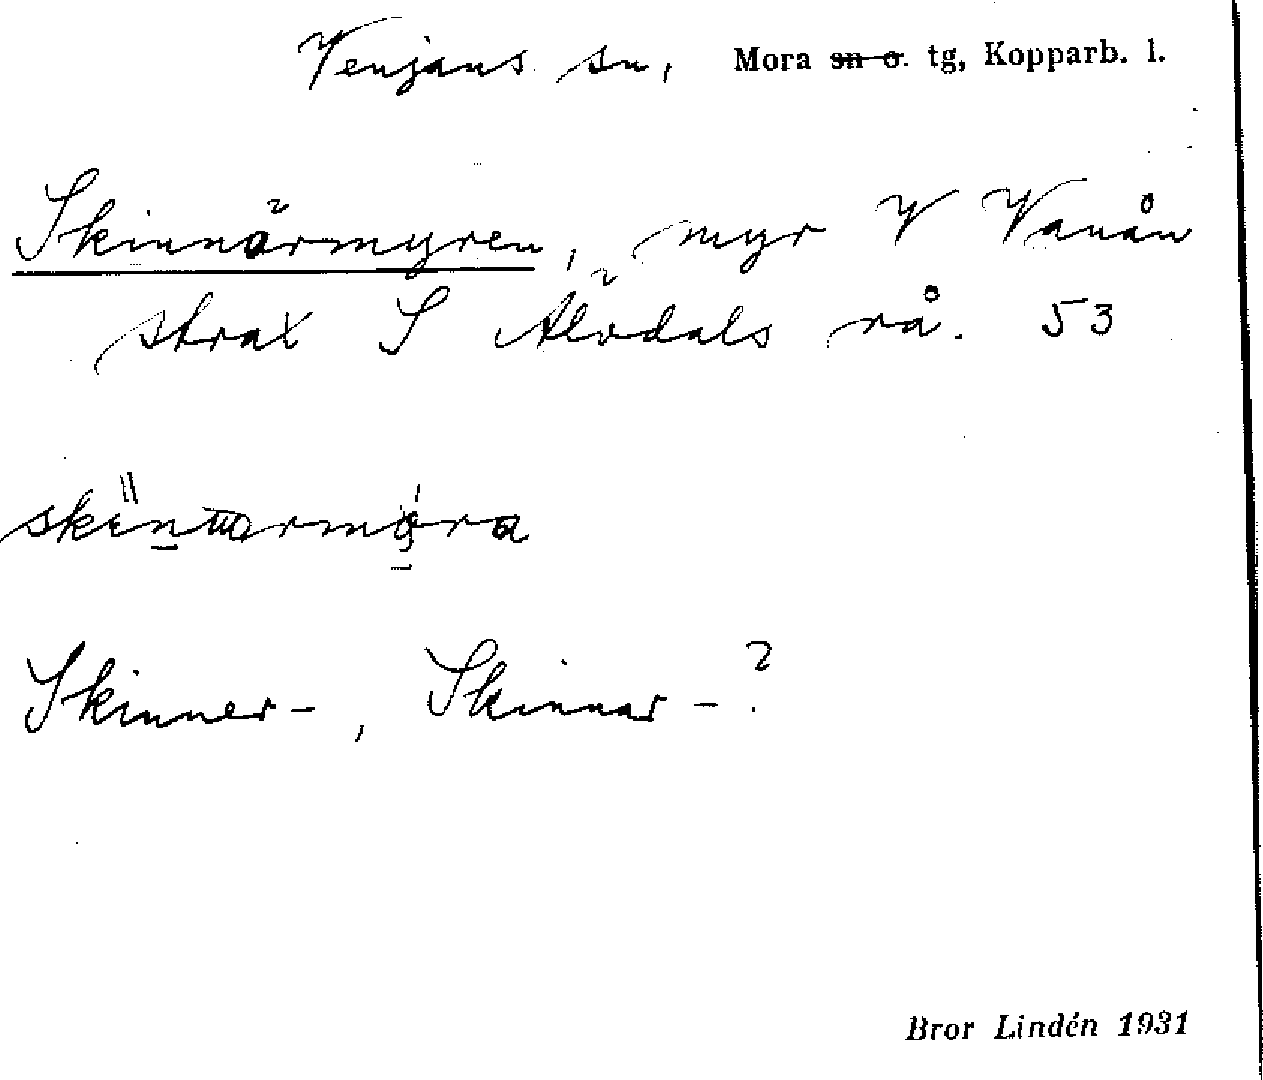 Venjans sn, Mora sn o. tg, Kopparb. l.
Skinnärmyren, myr V Vanån
strax S Älvdals rå. 53
Skinner-, Skinnar-?
Bror Lindén 1931